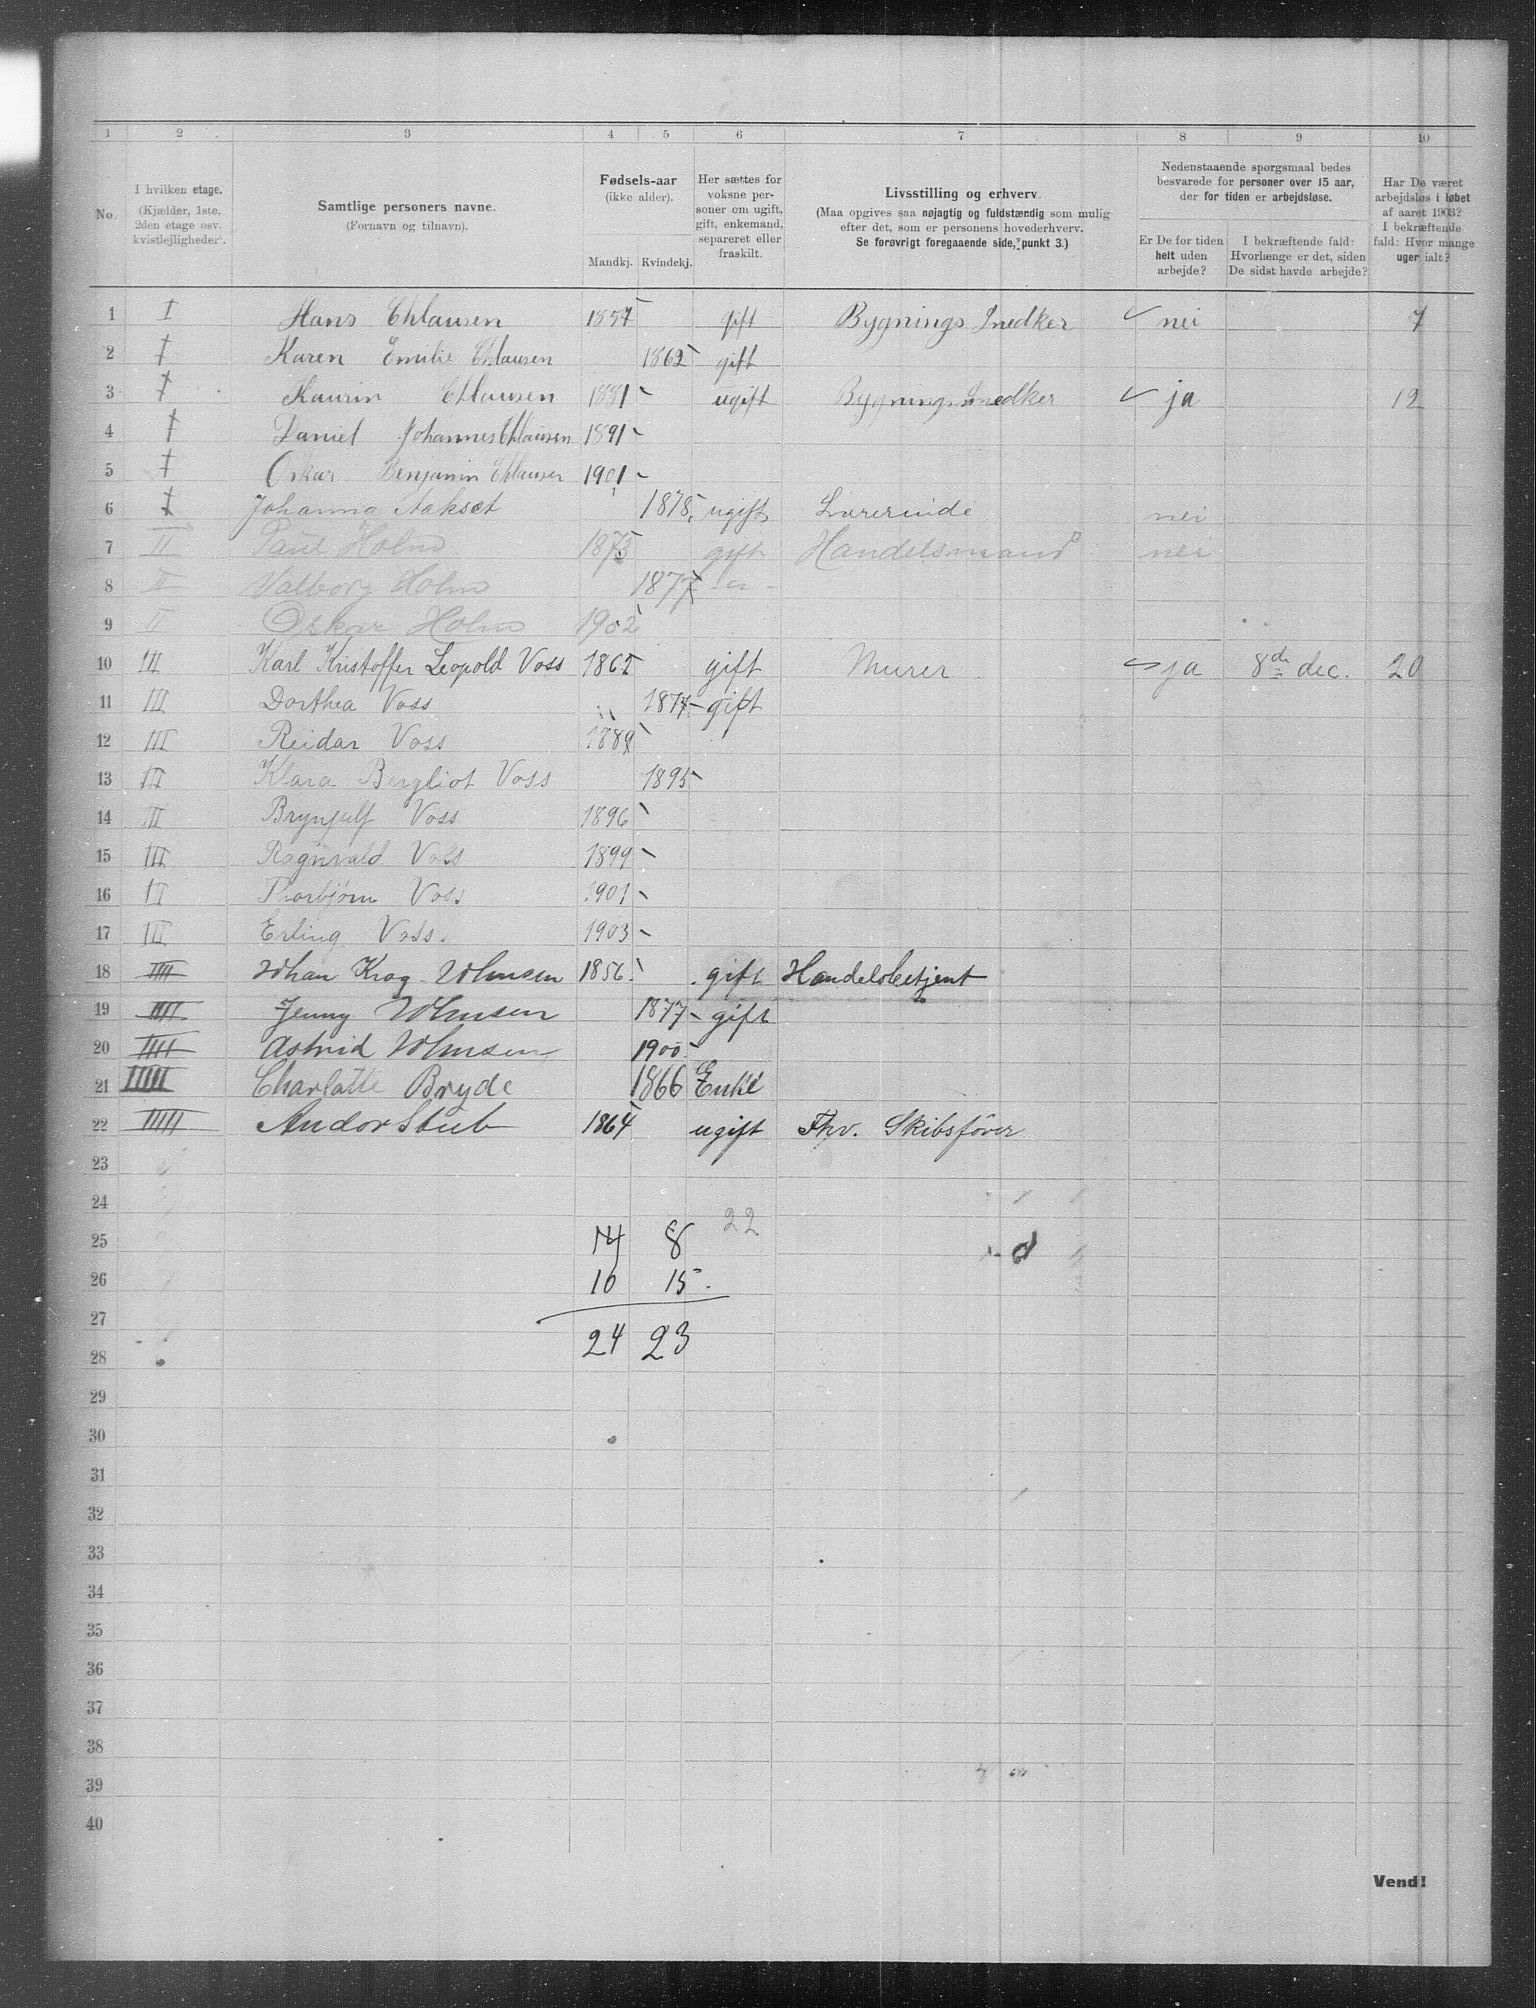 1 2 3 4 5 6 7 8 9 10
No.
I hvilken etage.
(Kjælder, 1ste, 2den etage osv. kvistlejligheder).
Samtlige personers navne.
(Fornavn og tilnavn).
Fødsels-aar
(ikke alder).
Mandkj. Kvindekj.
Her sættes for voksne personer om ugift, gift, enkemand, separeret eller fraskilt.
Livsstilling og erhverv.
(Maa opgives saa nøjagtig og fuldstændig som mulig
efter det, som er personens hovederhverv.
Se forøvrigt foregaaende side, punkt 3.)
Nedenstaaende spørgsmaal bedes
besvarede for personer over 15 aar,
der for tiden er arbejdsløse.
Er De for tiden helt uden arbejde?
I bekræftende fald: Hvorlænge er det, siden De sidst havde arbejde?
Har De været arbejdsløs i løbet af aaret 1903? I bekræftende fald: Hvor mange uger ialt?
1 I Hans Chlausen 1857 gift Bygnings Snedker nei 7
2 I Karen Emilie Chlausen 1862 gift
3 I Laurin Chlausen 1881 ugift Bygningssnedker ja 12
4 I Daniel Johannes Chlausen 1891
5 I Oskar Benjamin Chlausen 1901
6 I Johanna Aakset 1878 ugift Lærerinde nei
7 II Paul Holm 1873 gift Handelsmand nei
8 II Valborg Holm 1877
9 II Oskar Holm 1902
10 III Karl Kristoffer Leopold Voss 1862 gift Murer ja 8de dec. 20
11 III Dorthea Voss 1877 gift
12 III Reidar Voss 1889
13 III Klara Bergliot Voss 1895
14 III Brynjulf Voss 1896
15 III Ragnvald Voss 1899
16 III Thorbjørn Voss 1901
17 III Erling Voss. 1903
18 IIII Johan Krog Johnsen 1856 gift Handelsbetjent
19 IIII Jenny Johnsen 1877 gift
20 IIII Astrid Johnsen 1900
21 IIIII Charlotte Bryde 1866 Enke
22 IIIII Andor Stub 1864 ugift Fhv. Skibsfører
23
24 22
25 14 8
26 10 15
27
28 24 23
29
30
31
32
33
34
35
36
37
38
39
40
Vend!